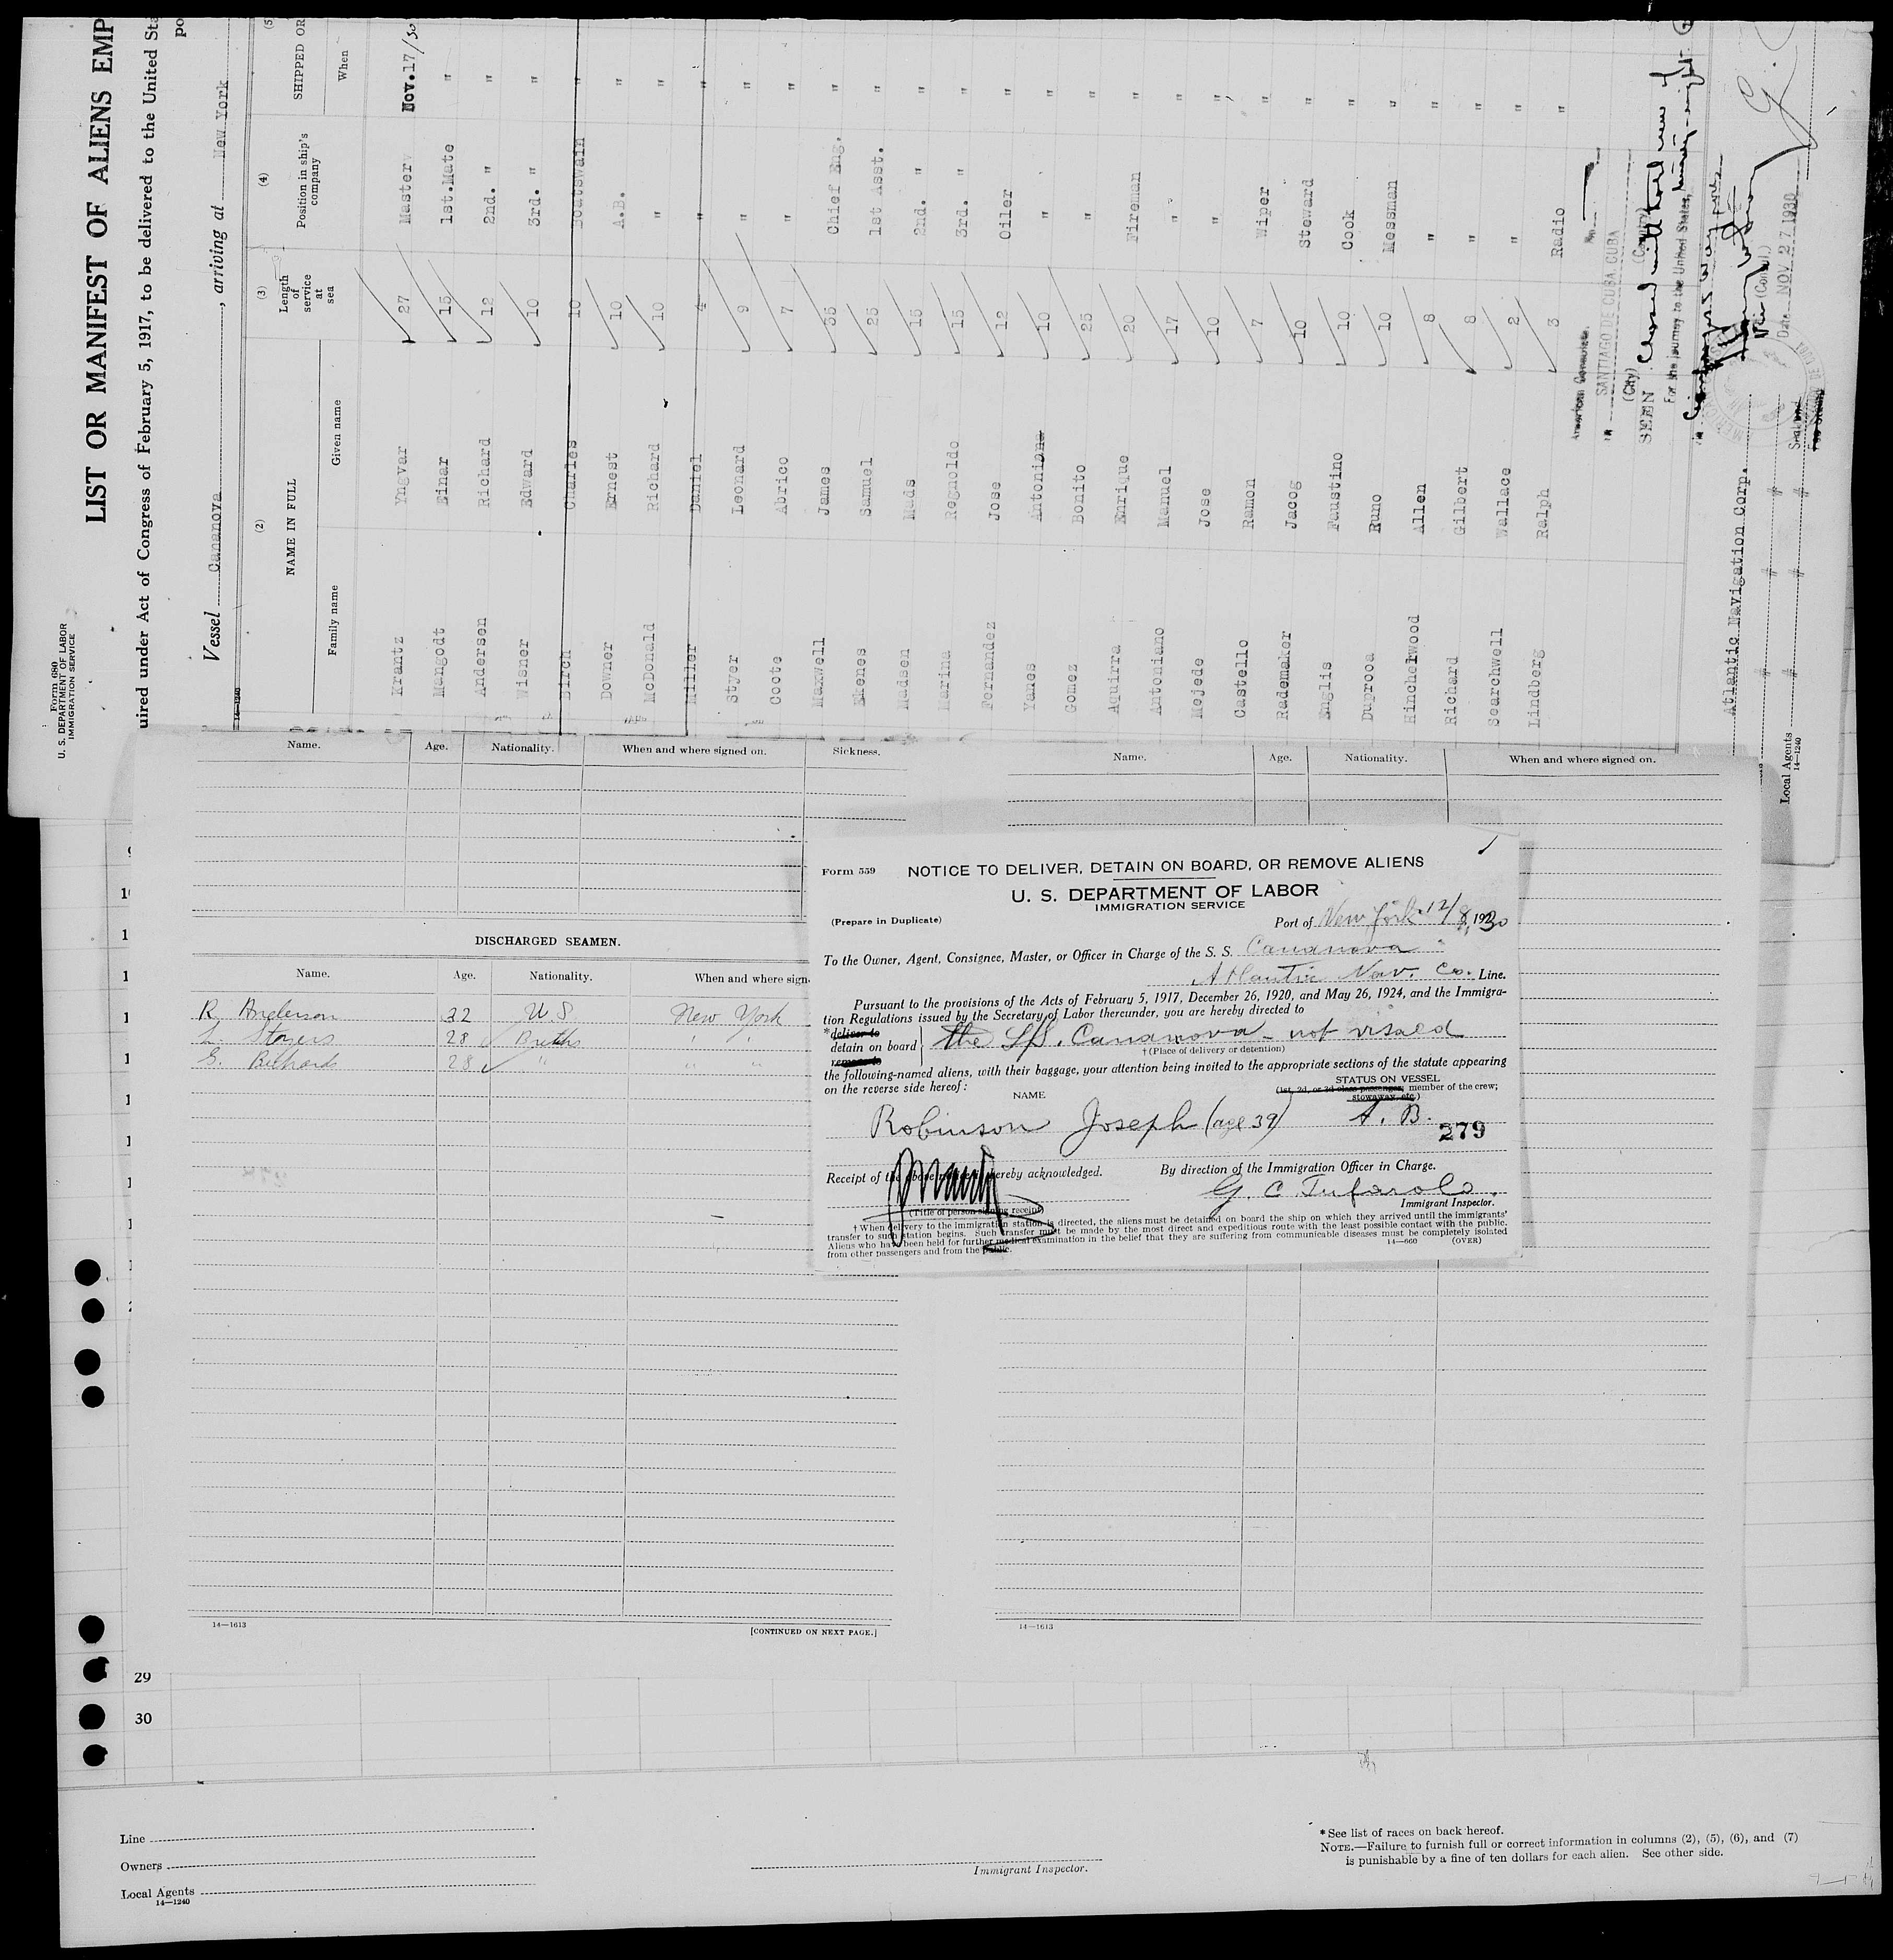 Form 680
U. S. DEPARTMENT OF LABOR
IMMIGRATION SERVICE
LIST OR MANIFEST OF ALIENS EMP
uired under Act of Congress of February 5, 1917, to be delivered to the United Sta
po
Vessel Cananova, arriving at New York
14—1240
(2) (3) (4) (5)
NAME IN FULL Length of service at sea Position in ship's company SHIPPED OR
Family name Given name When
Krantz Yngvar 27 Master Nov.17/30
Mangodt Einar 15 1st.Mate "
Anderson Richard 12 2nd. " "
Wisner Edward 10 3rd. " "
Birch Charles 10 Boatswain "
Downer Ernest 10 A.B. "
McDonald Richard 10 " "
Miller Daniel 4 " "
Styer Leonard 9 " "
Coote Abrico 7 " "
Maxwell James 35 Chief Eng. "
Ekenes Samuel 25 1st Asst. "
Madsen Mads 15 2nd. " "
Marina Regnoldo 15 3rd. " "
Fernandez Jose 12 Oiler "
Yanes Antonio 10 " "
Gomez Bonito 25 " "
Aquirra Enrique 20 Fireman "
Antoniano Manuel 17 " "
Mejede Jose 10 " "
Castello Ramon 7 Wiper "
Rademaker Jacog 10 Steward "
Englis Faustino 10 Cook "
Duprooa Runo 10 Messman "
Hincherwood Allen 8 " "
Richard Gilbert 8 " "
Searchwell Wallace 2 " "
Lindberg Ralph 3 Radio "
American Consulate.
SANTIAGO DE CUBA, CUBA
(City) (Country)
SEEN
For the journey to the United States,
Vice (Consul)
Date NOV 27 1930
Seal and
Fee Stamp
Atlantic Navigation Corp.
" "
" "
Local Agents
14—1240
Name. Age. Nationality. When and where signed on. Sickness.
Name. Age. Nationality. When and where signed on.
DISCHARGED SEAMEN.
Name. Age. Nationality. When and where sign
R Anderson 32 U S. New York
L. Stayers 28 British " "
G. Richards 28 " " "
14—1613
[CONTINUED ON NEXT PAGE.]
14—1613
Form 559
NOTICE TO DELIVER, DETAIN ON BOARD, OR REMOVE ALIENS
U. S. DEPARTMENT OF LABOR
IMMIGRATION SERVICE
(Prepare in Duplicate)
Port of New York 12/8, 1930
To the Owner, Agent, Consignee, Master, or Officer in Charge of the S. S. Cananova
Atlantic Nav. Co. Line.
Pursuant to the provisions of the Acts of February 5, 1917, December 26, 1920, and May 26, 1924, and the Immigra-
tion Regulations issued by the Secretary of Labor thereunder, you are hereby directed to
*deliver to
detain on board
remove to
the S/S. Cananova - not visaed
† (Place of delivery or detention)
the following-named aliens, with their baggage, your attention being invited to the appropriate sections of the statute appearing
on the reverse side hereof:
STATUS ON VESSEL
NAME
(1st, 2d, or 3d class passenger; member of the crew;
stowaway, etc.)
Robinson Joseph (age 39) A. B.
279
Receipt of the above notice is hereby acknowledged.
By direction of the Immigration Officer in Charge.
G. C. Tufarolo.
Immigrant Inspector.
(Title of person signing receipt)
† When delivery to the immigration station is directed, the aliens must be detained on board the ship on which they arrived until the immigrants'
transfer to such station begins. Such transfer must be made by the most direct and expeditious route with the least possible contact with the public.
Aliens who have been held for further medical examination in the belief that they are suffering from communicable diseases must be completely isolated
from other passengers and from the public.
14—660 (OVER)
29
30
Line
Owners
Local Agents
14—1240
Immigrant Inspector.
* See list of races on back hereof.
NOTE.—Failure to furnish full or correct information in columns (2), (5), (6), and (7)
is punishable by a fine of ten dollars for each alien. See other side.